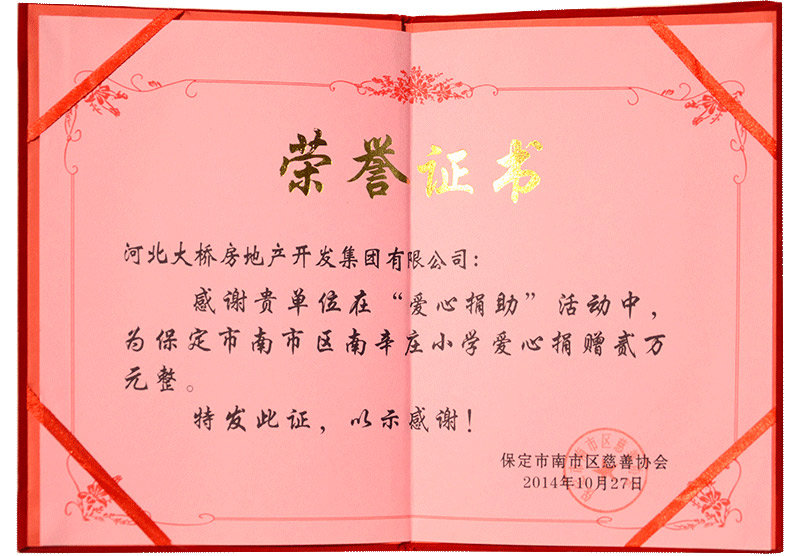 荣誉证书
河北大桥房地产开发集团有限公司：
感谢贵单位在“爱心捐助”活动中，
为保定市南市区南辛庄小学爱心捐赠贰万
元整。
特发此证，以示感谢！
保定市南市区慈善协会
2014年10月27日